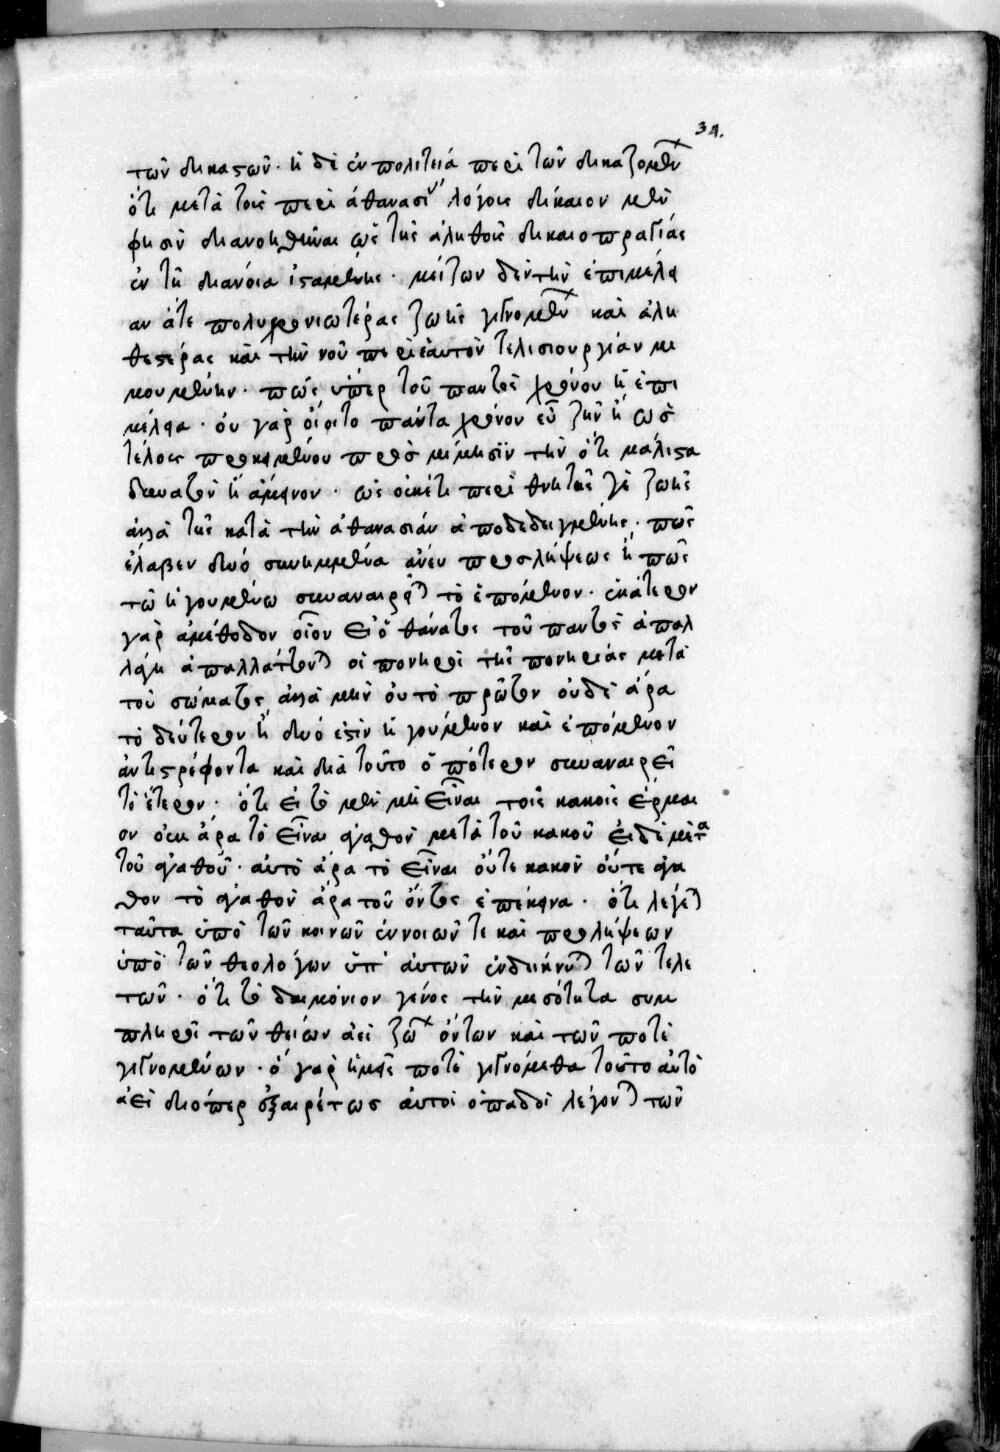 31.
τῶν δικαστῶν· ἡ δὲ ἐν πολιτεία περὶ τῶν δικαζομένων
ὅτι μετὰ τοὺς περὶ ἀθανασίας λόγους δίκαιον μὲν
φησὶν διανοηθῆναι ὡς τῆς ἀληθοῦς δικαιοπραγίας
ἐν τῆ διανοία ἱσταμένης· μείζων δὲ τὴν ἐπιμέλει
αν ἅτε πολυχρονιωτέρας ζωῆς γιγνομένην καὶ ἀλη
θεστέρας καὶ τὴν νοῦ περὶ ἑαυτὸν τελεσιουργίαν μι
μουμένην· πῶς ὑπὲρ τοῦ παντὸς χρόνου ἡ ἐπι
μέλεια· οὐ γὰρ οἷόν τε πάντα χρόνον εὖ ζῆν ἢ ὡς
τέλους προκειμένου πρὸς μίμησιν τὴν ὅτι μάλιστα
δυνατὸν ἢ ἄμεινον· ὡς οὐκέτι περὶ θνητῆς γε ζωῆς
ἀλλὰ τῆς κατὰ τὴν ἀθανασίαν ἀποδεδειγμένης· πῶς
ἔλαβεν δύο συνημμένα ἄνευ προσλήψεως ἢ πῶς
τῶ ἡγουμένω συναναιρεῖται τὸ ἑπόμενον· ἑκάτερον
γὰρ ἀμέθοδον οἷον εἰ ὁ θάνατος τοῦ παντὸς ἀπαλ
λαγὴ ἀπαλλάττονται οἱ πονηροὶ τῆς πονηρίας μετὰ
τοῦ σώματος ἀλλὰ μὴν οὐ τὸ πρῶτον οὐδὲ ἄρα
τὸ δεύτερον ἢ δύο ἐστὶν ἡγούμενον καὶ ἑπόμενον
ἀντιστρέφοντα καὶ διὰ τοῦτο ὁπότερον συναναιρεῖ
τὸ ἕτερον· ὅτι εἰ τὸ μὲν μὴ εἶναι τοῖς κακοῖς ἕρμαι
ον οὐκ ἄρα τὸ εἶναι ἀγαθὸν μετὰ τοῦ κακοῦ εἰ δὲ μετὰ
τοῦ ἀγαθοῦ· αὐτὸ ἄρα τὸ εἶναι οὔτε κακὸν οὔτε ἀγα
θον τὸ ἀγαθὸν ἄρα τοῦ ὄντος ἐπέκεινα· ὅτι λέγεται
ταῦτα ὑπὸ τῶν κοινῶν ἐννοιῶν τε καὶ προλήψεων
ὑπὸ τῶν θεολόγων ὑπ' αὐτῶν ἐνδείκνυται τῶν τελε
τῶν· ὅτι τὸ δαιμόνιον γένος τὴν μεσότητα συμ
πληροῖ τῶν θείων ἀεὶ ζώων ὄντων καὶ τῶν ποτὲ
γιγνομένων· ὃ γὰρ ἡμεῖς ποτὲ γιγνόμεθα τοῦτο αὐτὸ
ἀεὶ διόπερ ἐξαιρέτως αὐτοὶ ὀπαδοὶ λέγονται τῶν